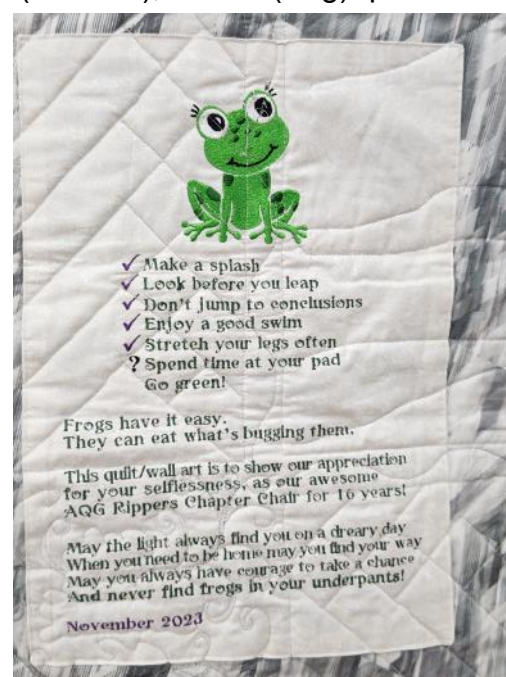 ✓ Make a splash
✓ Look before you leap
✓ Don't jump to conclusions
✓ Enjoy a good swim
✓ Stretch your legs often
? Spend time at your pad
Go green!
Frogs have it easy.
They can eat what's bugging them.
This quilt/wall art is to show our appreciation
for your selflessness, as our awesome
AQG Rippers Chapter Chair for 16 years!
May the light always find you on a dreary day
When you need to be home may you find your way
May you always have courage to take a chance
And never find frogs in your underpants!
November 2023